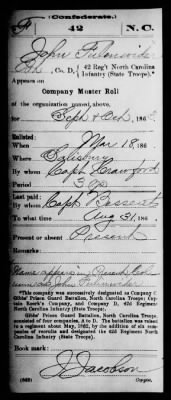 (Confederate.)
42 N. C.
John
Co. D, 42 Reg't North Carolina
Infantry (State Troops).*
Appears on
Company Muster Roll
of the organization named above,
for Sept & Oct, 186
Enlisted:
When Mar 18, 186
Where Salisbury
By whom Capt Crawford
Period 3 yrs
Last paid:
By whom Capt
To what time Aug 31, 186
Present or absent Present
Remarks:
Name appears in
as John
*This company was successively designated as Company
Gibbs' Prison Guard Battalion, North Carolina Troops; Captain
Company and Company D, 42d Regiment
North Carolina Infantry (State Troops).
Gibbs' Prison Guard Battalion, North Carolina Troops,
consisted of four companies, A to D. The battalion was raised
to a regiment about May, 1862, by the addition of six companies
of recruits and designated the 42d Regiment North
Carolina Infantry (State Troops).
Book mark:
J. Jacobson
(642) Copyist.